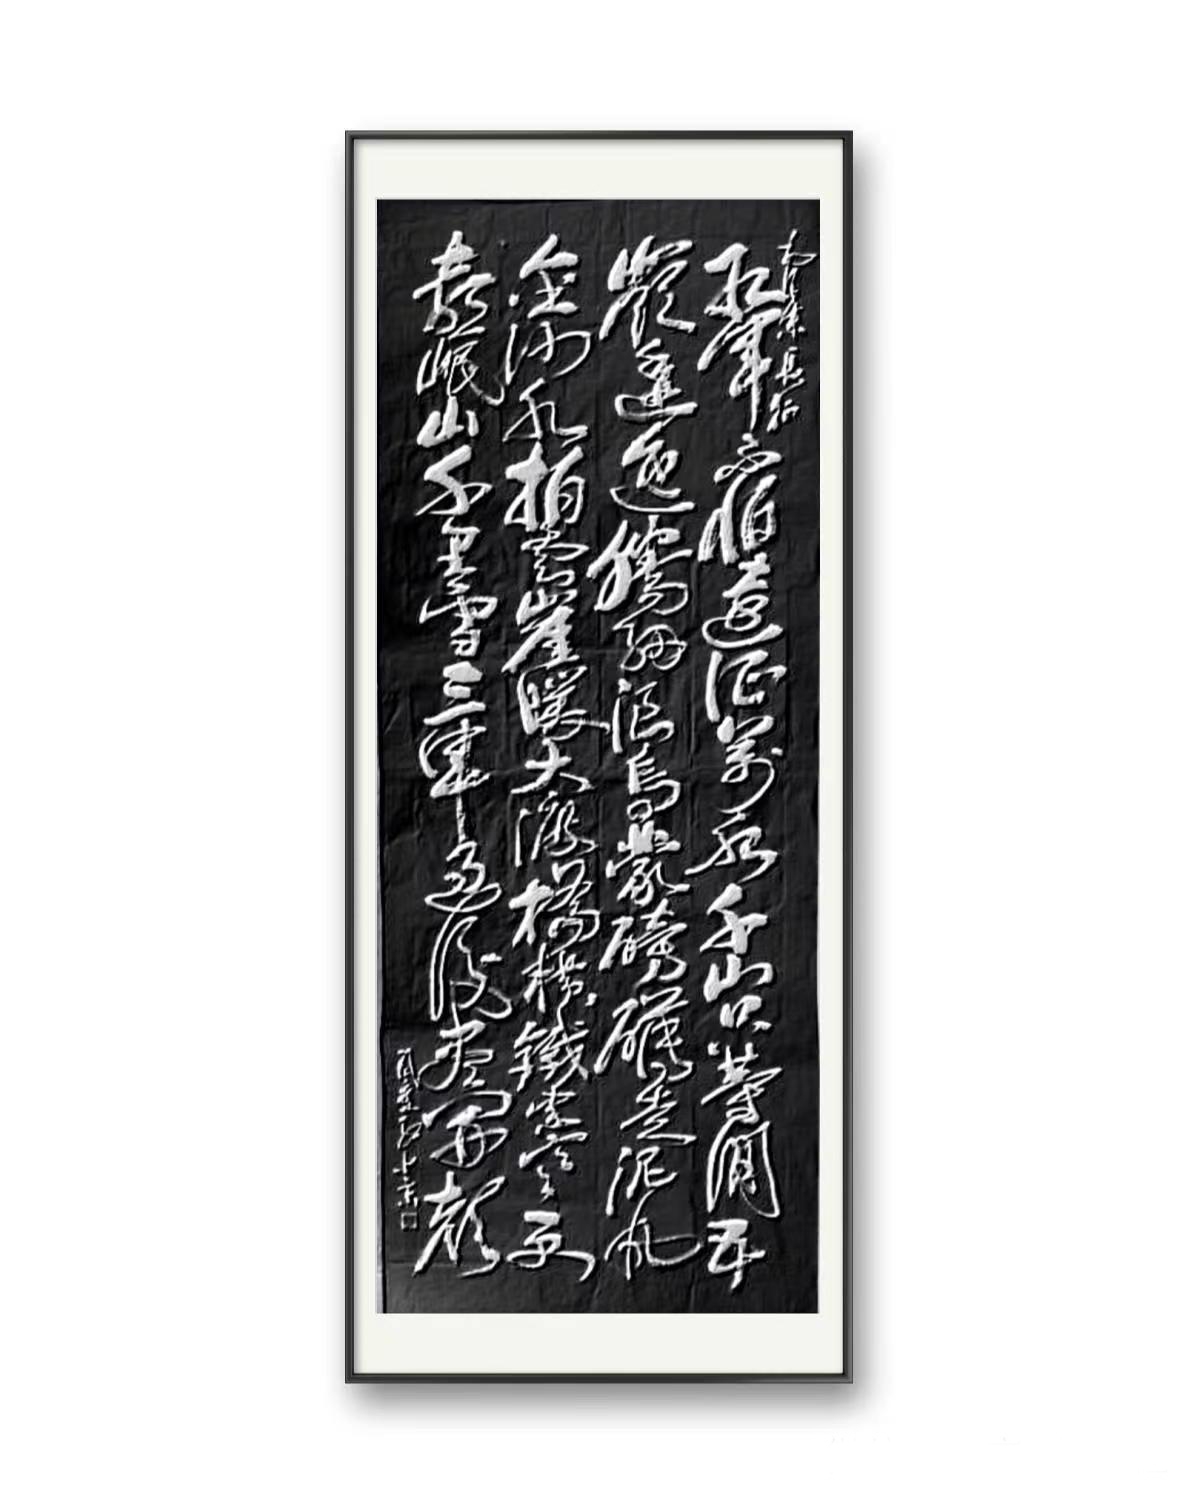 長征
紅軍不怕遠征萬水千山只等閒五
嶺逶迤騰細浪烏蒙磅礴走泥丸
金沙水拍雲崖暖大渡橋橫鐵索寒更
喜岷山千里雪三軍過後盡開顏